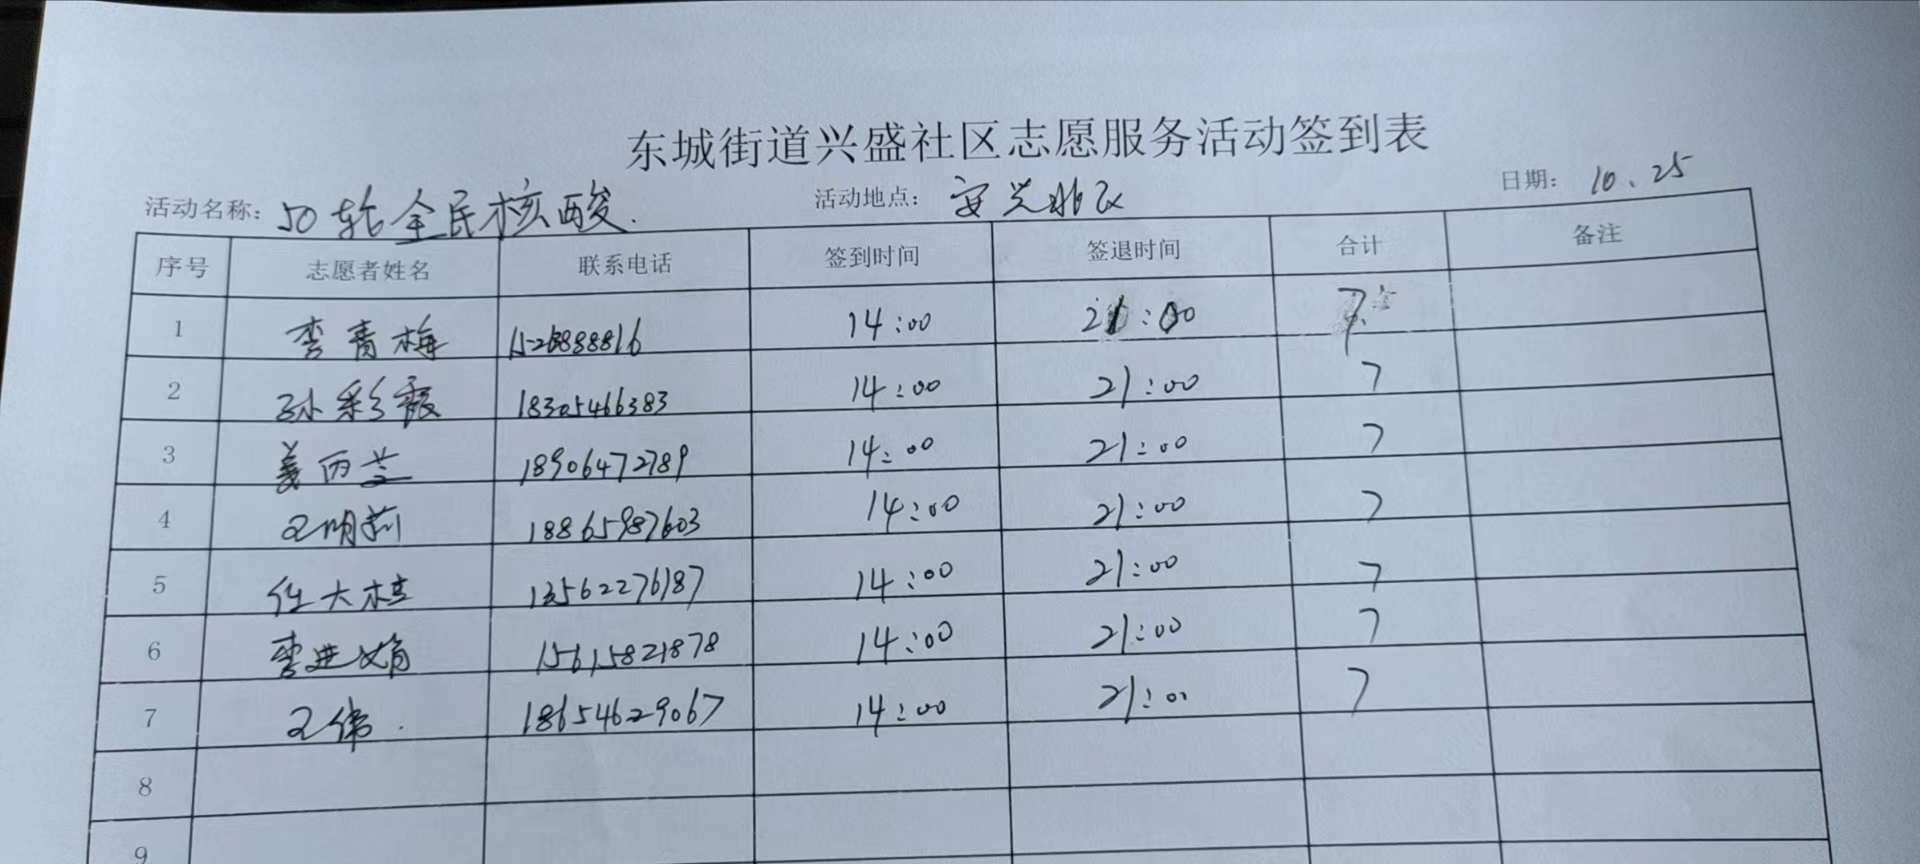 东城街道兴盛社区志愿服务活动签到表
活动名称: 50轮全民核酸. 活动地点: 安兴北区 日期: 10.25
序号 志愿者姓名 联系电话 签到时间 签退时间 合计 备注
1 李青梅 14:00 21:00 7
2 孙彩霞 18305466383 14:00 21:00 7
3 姜丙兰 18906472789 14:00 21:00 7
4 王明莉 18865987603 14:00 21:00 7
5 任大桂 13562276187 14:00 21:00 7
6 李进娟 15615821878 14:00 21:00 7
7 王伟. 18654629067 14:00 21:00 7
8
9